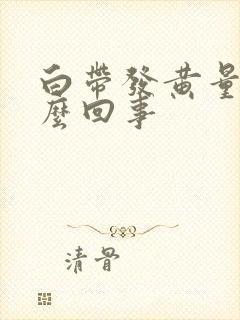 白帶發黄量
麼回事
清骨